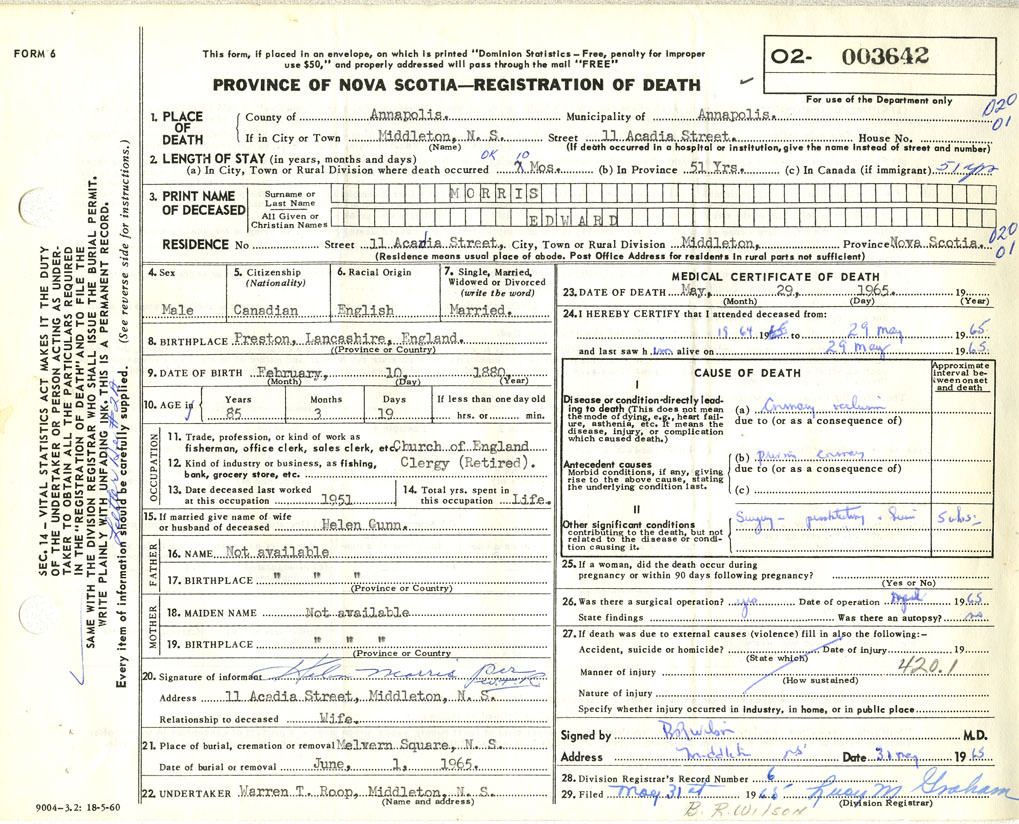 FORM 6
This form, if placed in an envelope, on which is printed "Dominion Statistics – Free, penalty for improper
use $50," and properly addressed will pass through the mail "FREE"
PROVINCE OF NOVA SCOTIA—REGISTRATION OF DEATH
O2- 003642
For use of the Department only
D20
01
1. PLACE OF DEATH
County of Annapolis. Municipality of Annapolis.
If in City or Town Middleton, N. S. Street 11 Acadia Street. House No.
(Name) (If death occurred in a hospital or institution, give the name instead of street and number)
2. LENGTH OF STAY (in years, months and days) OK 10
(a) In City, Town or Rural Division where death occurred X Mos. (b) In Province 51 Yrs. (c) In Canada (if immigrant) 51 yrs
3. PRINT NAME OF DECEASED
Surname or Last Name MORRIS
All Given or Christian Names EDWARD
D20
01
RESIDENCE No Street 11 Acadia Street, City, Town or Rural Division Middleton, Province Nova Scotia.
(Residence means usual place of abode. Post Office Address for residents in rural parts not sufficient)
4. Sex
Male
5. Citizenship
(Nationality)
Canadian
6. Racial Origin
English
7. Single, Married,
Widowed or Divorced
(write the word)
Married.
8. BIRTHPLACE Preston, Lancashire, England.
(Province or Country)
9. DATE OF BIRTH February, 10, 1880.
(Month) (Day) (Year)
10. AGE in
Years Months Days If less than one day old
85 3 19 hrs. or min.
OCCUPATION
11. Trade, profession, or kind of work as
fisherman, office clerk, sales clerk, etc. Church of England
12. Kind of industry or business, as fishing, Clergy (Retired).
bank, grocery store, etc.
13. Date deceased last worked
at this occupation 1951
14. Total yrs. spent in
this occupation Life.
15. If married give name of wife
or husband of deceased Helen Gunn.
FATHER
16. NAME Not available
17. BIRTHPLACE " " "
(Province or Country)
MOTHER
18. MAIDEN NAME Not available
19. BIRTHPLACE " " "
(Province or Country)
20. Signature of informant Helen Morris per
Address 11 Acadia Street, Middleton, N. S.
Relationship to deceased Wife.
21. Place of burial, cremation or removal Melvern Square, N. S.
Date of burial or removal June, 1, 1965.
22. UNDERTAKER Warren T. Roop, Middleton, N. S.
(Name and address)
MEDICAL CERTIFICATE OF DEATH
23. DATE OF DEATH May, 29, 1965. 19
(Month) (Day) (Year)
24. I HEREBY CERTIFY that I attended deceased from:
1964 19 to 29 May 1965
and last saw him alive on 29 May 1965
CAUSE OF DEATH
Approximate
interval be-
tween onset
and death
I
Disease or condition-directly lead-
ing to death (This does not mean
the mode of dying, e.g., heart fail-
ure, asthenia, etc. It means the
disease, injury, or complication
which caused death.)
(a) Coronary occlusion
due to (or as a consequence of)
Antecedent causes
Morbid conditions, if any, giving
rise to the above cause, stating
the underlying condition last.
(b) previous coronary
due to (or as a consequence of)
(c)
II
Other significant conditions
contributing to the death, but not
related to the disease or condi-
tion causing it.
Surgery –
25. If a woman, did the death occur during
pregnancy or within 90 days following pregnancy?
(Yes or No)
26. Was there a surgical operation? yes Date of operation April 1965
State findings Was there an autopsy? no
27. If death was due to external causes (violence) fill in also the following:–
Accident, suicide or homicide? Date of injury 19
(State which)
Manner of injury 420.1
(How sustained)
Nature of injury
Specify whether injury occurred in industry, in home, or in public place
Signed by B R Wilson M.D.
Address Middleton NS Date 31 May 1965
28. Division Registrar's Record Number 6
29. Filed May 31st 1965 Lucy M Graham
(Division Registrar)
B. R. WILSON
SEC. 14 – VITAL STATISTICS ACT MAKES IT THE DUTY
OF THE UNDERTAKER OR PERSON ACTING AS UNDER-
TAKER TO OBTAIN ALL THE PARTICULARS REQUIRED
IN THE "REGISTRATION OF DEATH" AND TO FILE THE
SAME WITH THE DIVISION REGISTRAR WHO SHALL ISSUE THE BURIAL PERMIT.
WRITE PLAINLY WITH UNFADING INK. THIS IS A PERMANENT RECORD.
Every item of information should be carefully supplied. (See reverse side for instructions.)
9004–3.2: 18-5-60